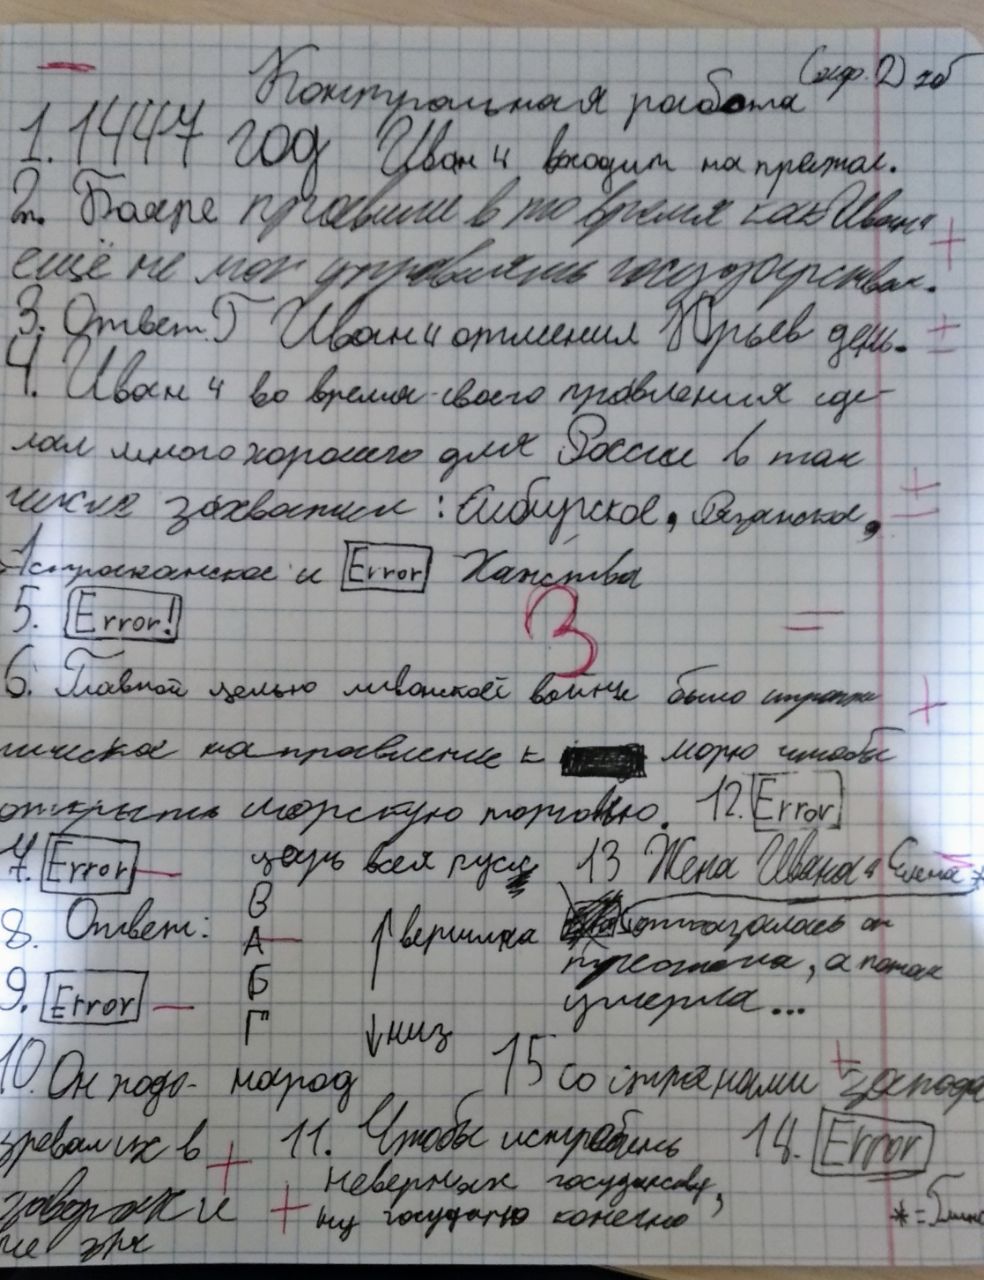 Контрольная работа
1. 1447 год Иван 4 входит на престол.
2. Бояре правили в то время как Иван 4
ещё не мог управлять государством.
3. Ответ. Г Иван 4 отменил Юрьев день.
4. Иван 4 во время своего правления сде-
лал много хорошего для России в том
числе захватил: Сибирское, Рязанское,
Астраханское и Error Ханства
3
5. Error!
6. Главной целью ливонской войны было
направление к морю чтобы
открыть морскую торговлю. 12. Error
7. Error царь всея руси 13 Жена Ивана 4 Елена *
8. Ответ: В А Б Г
↑ вершина
↓ низ
отказалась от
, а потом
умерла...
9. Error
10. Он подо- народ 15 со странами запада
зревал их в
заговорах и
не зря
11. Чтобы истребить
неверных государству,
ну государю конечно
14. Error